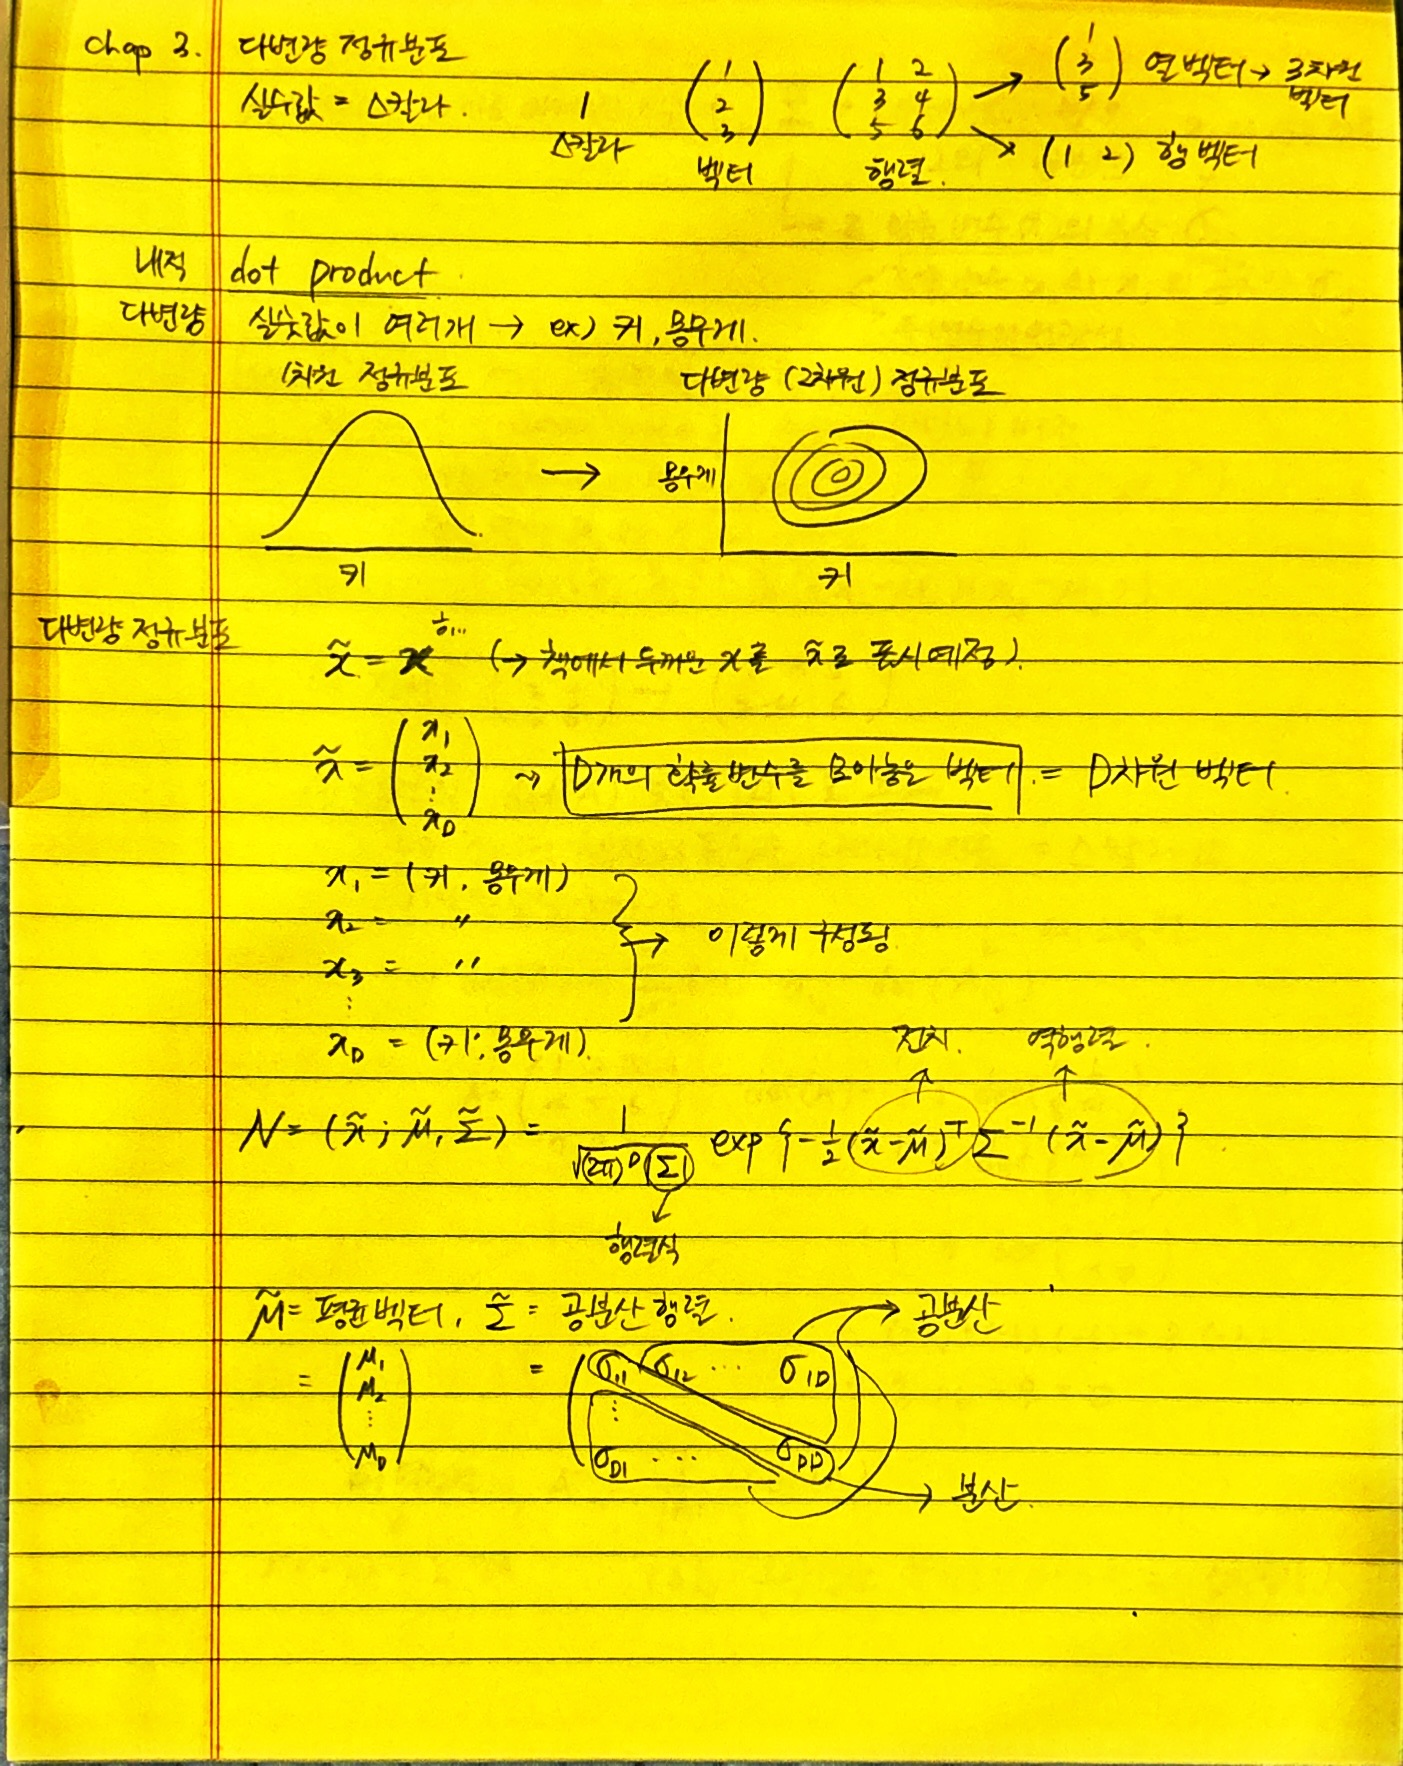 Chap 3. 다변량 정규분포
실수값 = 스칼라.
1
스칼라
(1 2 3)
벡터
(1 2
3 4
5 6)
행렬.
→ (1 3 5) 열벡터 → 3차원 벡터
→ (1 2) 행벡터
내적 dot product.
다변량 실숫값이 여러개 → ex) 키, 몸무게.
1차원 정규분포
다변량 (2차원) 정규분포
→
몸무게
키
키
다변량 정규분포
흠...
x̃ = x (→ 책에서 두꺼운 x를 x̃로 표시예정).
x̃ = (x₁ x₂ ⋮ x_D) ~> D개의 확률변수를 모아놓은 벡터 = D차원 벡터
x₁ = (키, 몸무게)
x₂ = 〃
x₃ = 〃
⋮
x_D = (키, 몸무게).
→ 이렇게 구성됨
전치.
역행렬.
N = (x̃ ; μ̃, Σ̃) = 1/√((2π)^D |Σ|) exp {-1/2 (x̃-μ̃)^T Σ^-1 (x̃-μ̃)}
행렬식
μ̃ = 평균벡터, Σ̃ = 공분산 행렬.
= (μ₁ μ₂ ⋮ μ_D)
= (σ₁₁ σ₁₂ ⋯ σ₁D
⋮
σ_D1 ⋯ σ_DD)
→ 공분산
→ 분산.